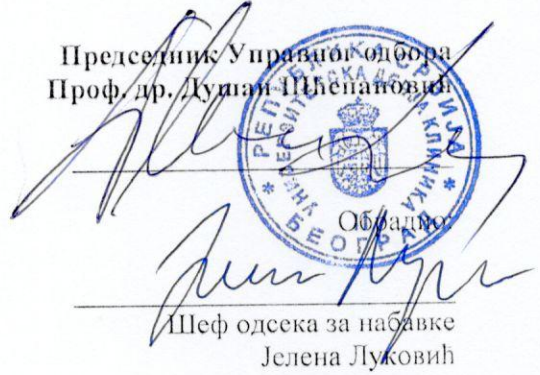 Председник Управног одбора
Проф. др. Душан Шћепановић
РЕПУБЛИКА СРБИЈА
УНИВЕРЗИТЕТСКА ДЕЧЈА КЛИНИКА
БЕОГРАД
Обрадио:
Шеф одсека за набавке
Јелена Луковић